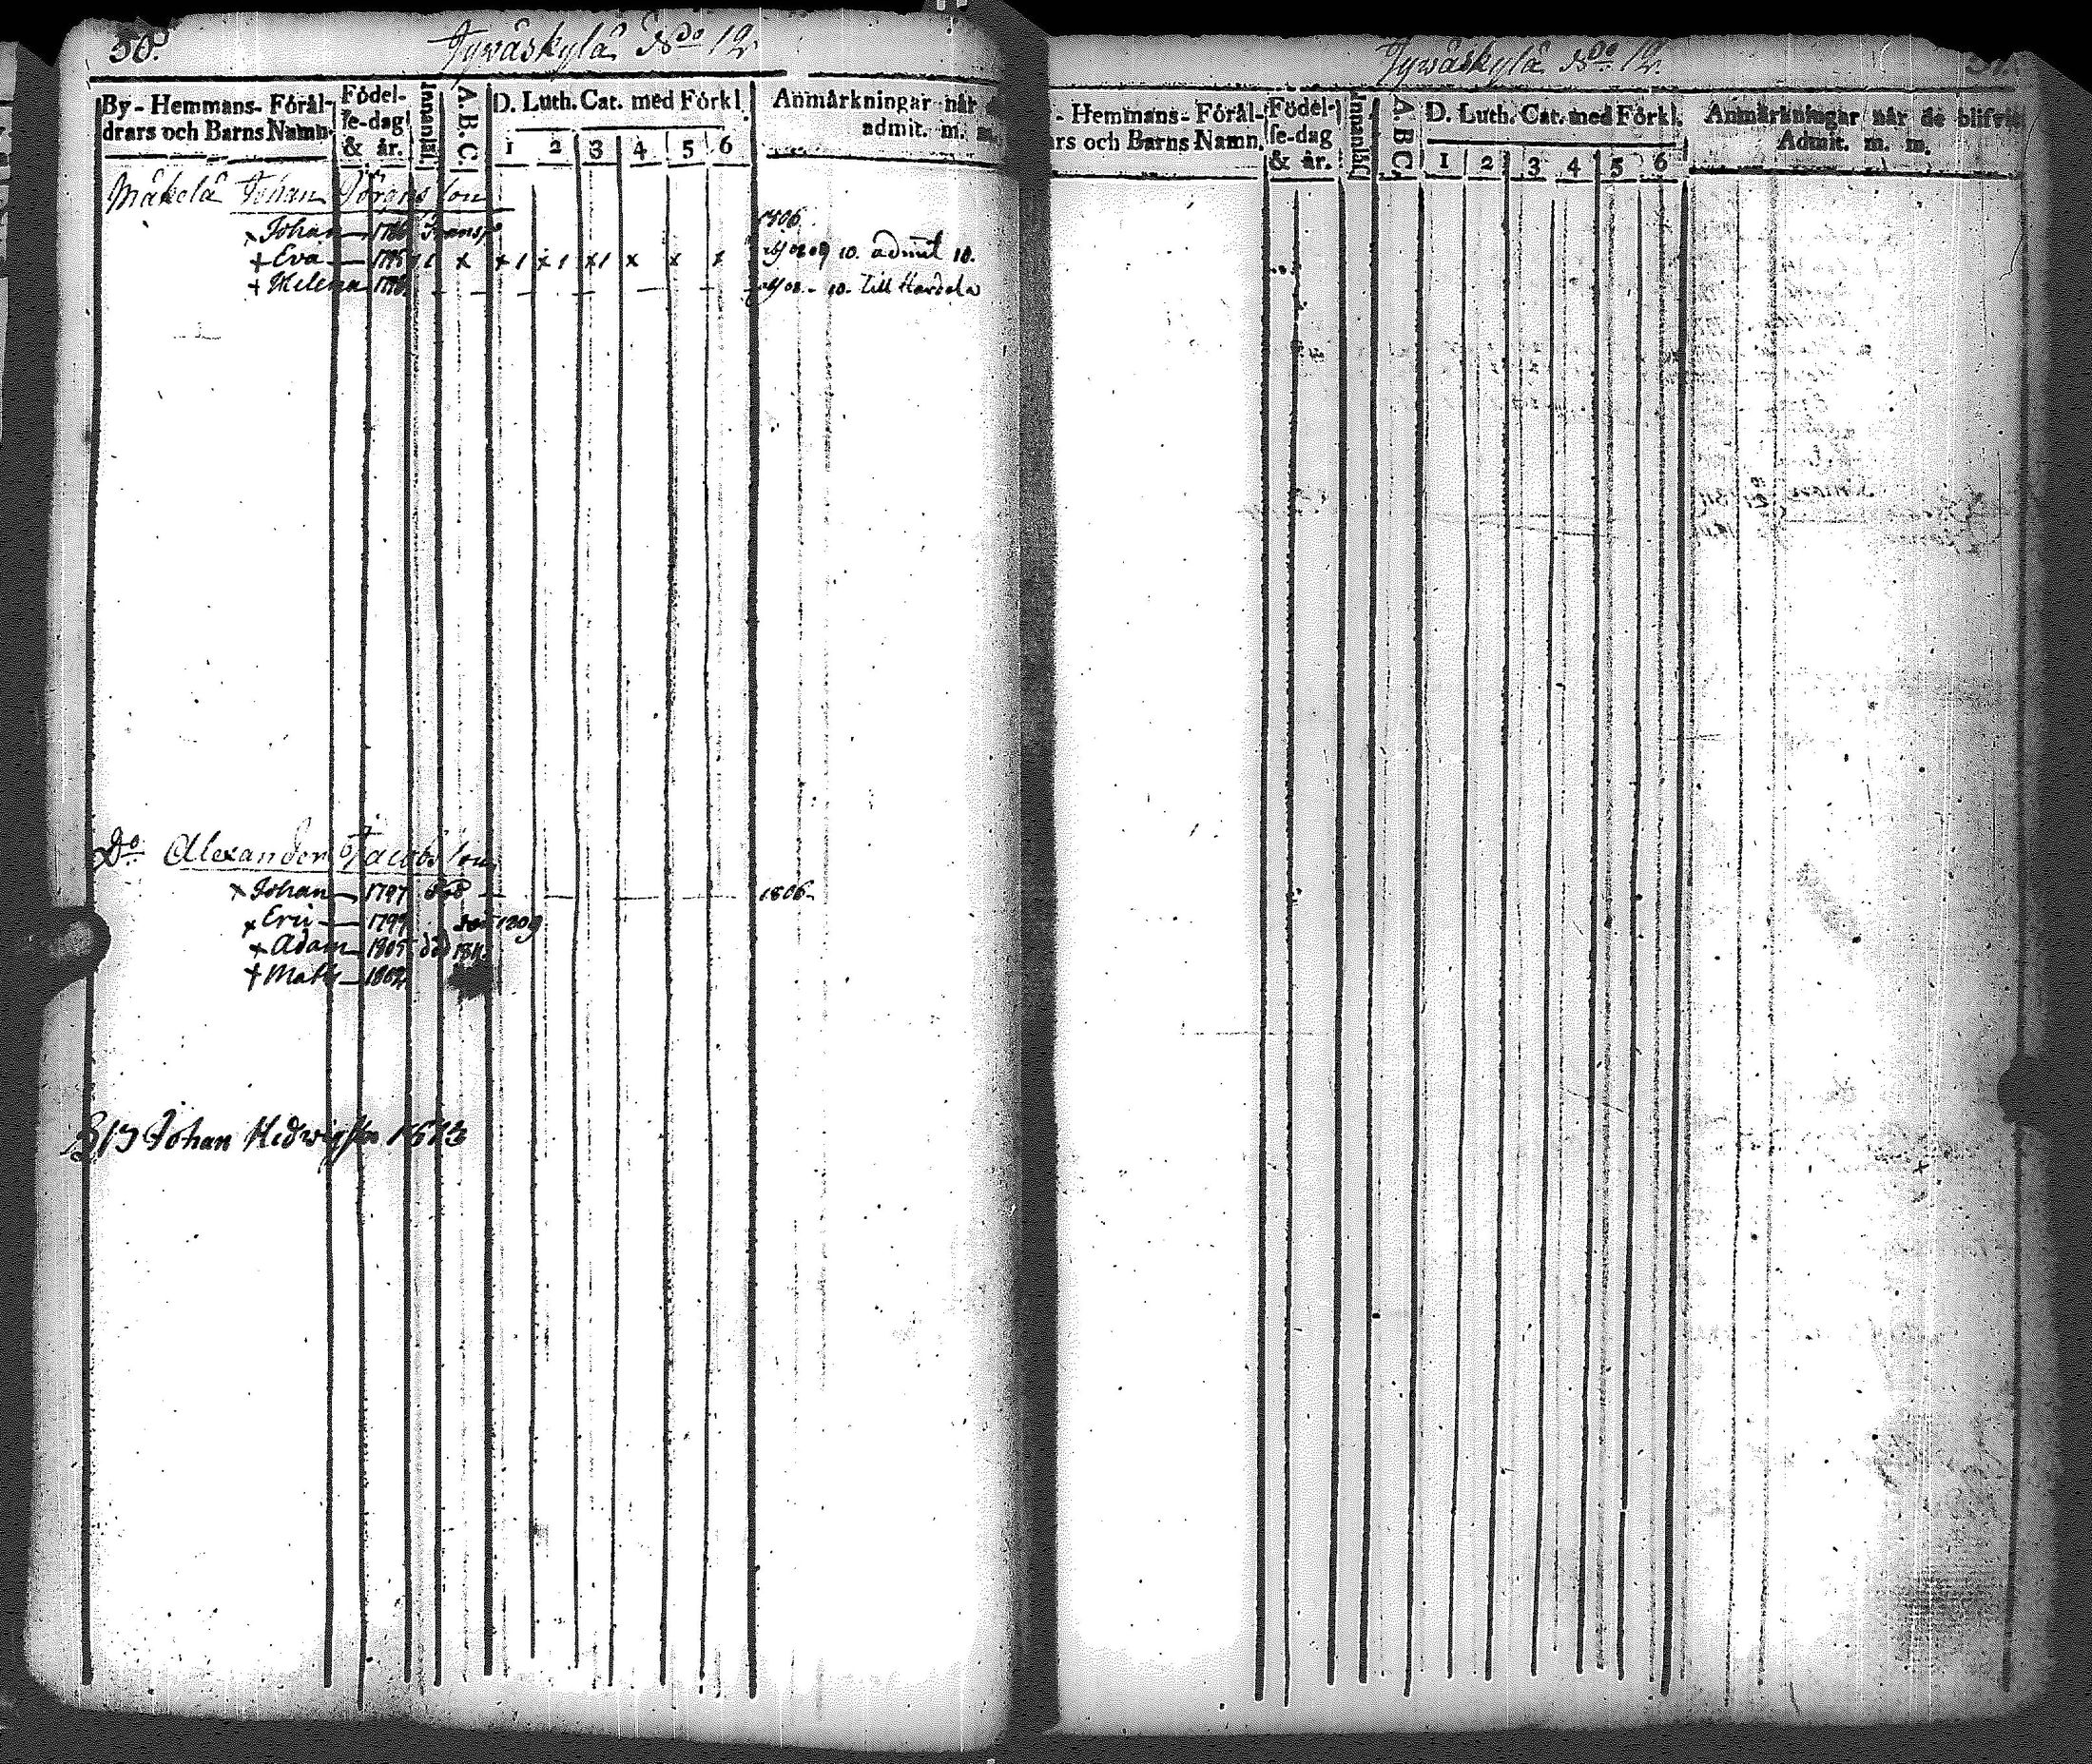 30.
Jywäskylä No 12.
By - Hemmans - Föräl-
drars och Barns Namn.
Födel-
se-dag
& år.
Innanläs.
A. B. C.
D. Luth. Cat. med Förkl.
1 2 3 4 5 6
Anmärkningar när
admit. m. m.
Mäkelä Johan Jörgensson
x Johan — Transp 1806
+ Eva — 1795 x x x x x x x 10. admit 10.
+ Helena 10. Till Hardela
Do Alexander Jacobsson
x Johan — 1797 död 1806.
x Eric — 1799 1809
x Adam — 1805 död
+ Matts — 1802
B 13 Johan Hedwigson 1813
Jywäskylä No 12.
- Hemmans - Föräl-
rs och Barns Namn.
Födel-
se-dag
& år.
Innanläs.
A. B. C.
D. Luth. Cat. med Förkl.
1 2 3 4 5 6
Anmärkningar när de blifvit
Admit. m. m.